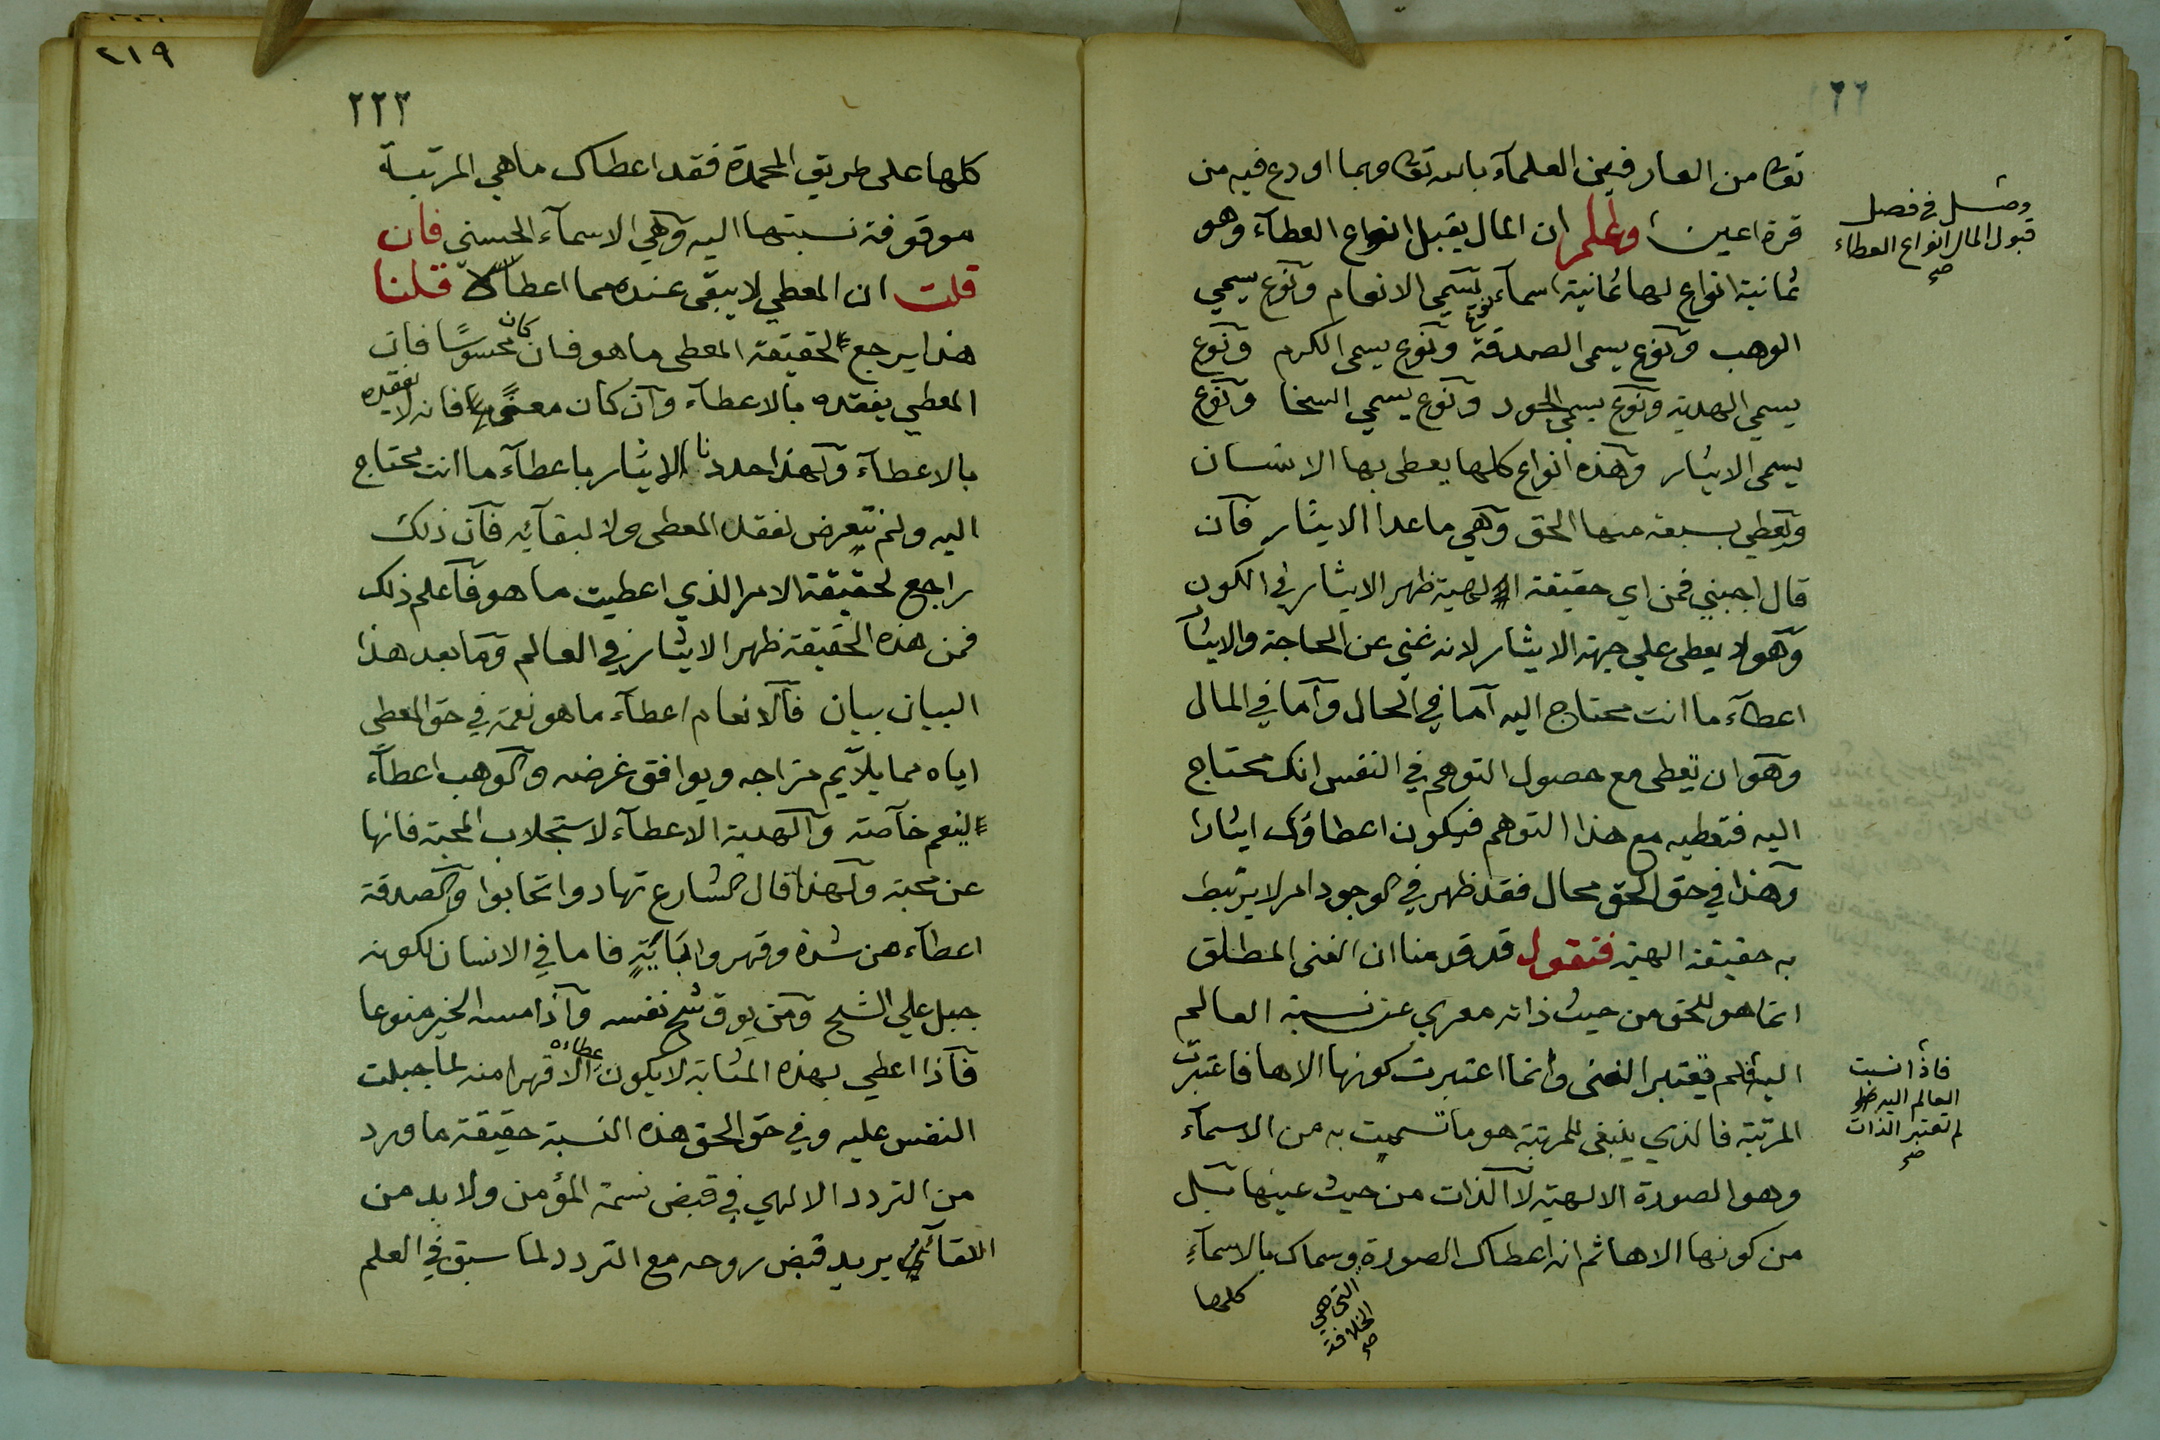 تعالى من العارفين العلمآء بالله تعالى وبما اودع فيه من
قرة اعين واعلم ان المال يقبل انواع العطآء وهو
وصل في فصل
قبول المال انواع العطاء
صح
ثمانية انواع لها ثمانية اسمآء نوع يسمى الانعام ونوع يسمي
الوهب ونوع يسمى الصدقة ونوع يسمى الكرم ونوع
يسمي الهدية ونوع يسمى الجود ونوع يسمي السخا ونوع
يسمى الايثار وهذه انواع كلها يعطى بها الانسان
ويعطي بسبعة منها الحق وهي ما عدا الايثار فان
قال اجنبي فمن اي حقيقة الهية ظهر الايثار في الكون
وهو لا يعطى علي جهة الايثار لانه غني عن الحاجة والايثار
اعطآء ما انت محتاج اليه اما في الحال واما في المال
وهو ان تعطى مع حصول التوهم في النفس انك محتاج
اليه فتعطيه مع هذا التوهم فيكون اعطاؤك ايثارا
وهذا في حق الحق محال فقد ظهر في الوجود امر لا يرتبط
به حقيقة الهية فنقول قد قدمنا ان الغنى المطلق
انما هو للحق من حيث ذاته معري عن نسبة العالم
اليه فلم يعتبر الغنى وانما اعتبرت كونها الاها فاعتبرت
فاذا نسبت
العالم اليه
لم تعتبر الذات
صح
المرتبة فالذي ينبغي للمرتبة هو ما تسميت به من الاسمآء
وهو الصورة الالهية لا الذات من حيث عينها بل
من كونها الاها ثم انه اعطاك الصورة وسماك بالاسمآء
التى هي
الخلافة
صح
كلها
٢١٩
٢٢٢
كلها على طريق المحمدة فقد اعطاك ما هي المرتبة
موقوفة نسبتها اليه وهي الاسمآء الحسنى فان
قلت ان المعطي لا يبقى عنده مما اعطاك قلنا
هذا يرجع لحقيقة المعطى ما هو فان كان محسوسًا فان
المعطي يفقده بالاعطآء وان كان معنى فانه لا يفقده
بالاعطآء ولهذا حددنا الايثار باعطآء ما انت محتاج
اليه ولم نتعرض لفقد المعطى ولا لبقآئه فان ذلك
راجع لحقيقة الامر الذي اعطيت ما هو فاعلم ذلك
فمن هذه الحقيقة ظهر الايثار في العالم وما بعد هذا
البيان بيان فالانعام اعطآء ما هو نعمة في حق المعطى
اياه مما يلآيم مزاجه ويوافق غرضه والوهب اعطآء
لينعم خآصة والهدية الاعطآء لاستجلاب المحبة فانها
عن محبة ولهذا قال الشارع تهادوا تحابوا والصدقة
اعطآء عن شدة وقهر واباية فاما في الانسان لكونه
جبل علي الشح ومن يوق شح نفسه واذا مسه الخير منوعا
فاذا اعطي بهذه المثابة لا يكون عطاؤه الا قهرا منه لما جبلت
النفس عليه وفي حق الحق هذه النسبة حقيقة ما ورد
من التردد الالهي في قبض نسمة المؤمن ولابد من
اللقآء يريد قبض روحه مع التردد لما سبق في العلم